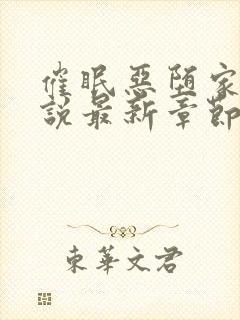 催眠惡堕家
說最新章節
東華文君